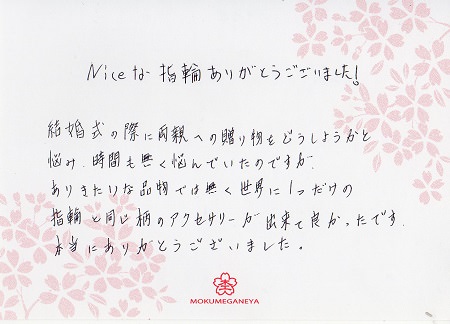 Niceな指輪ありがとうございました!
結婚式の際に両親への贈り物をどうしようかと
悩み、時間も無く悩んでいたのですが、
ありきたりな品物では無く世界に1つだけの
指輪と同じ柄のアクセサリーが出来て良かったです。
本当にありがとうございました。
MOKUMEGANEYA